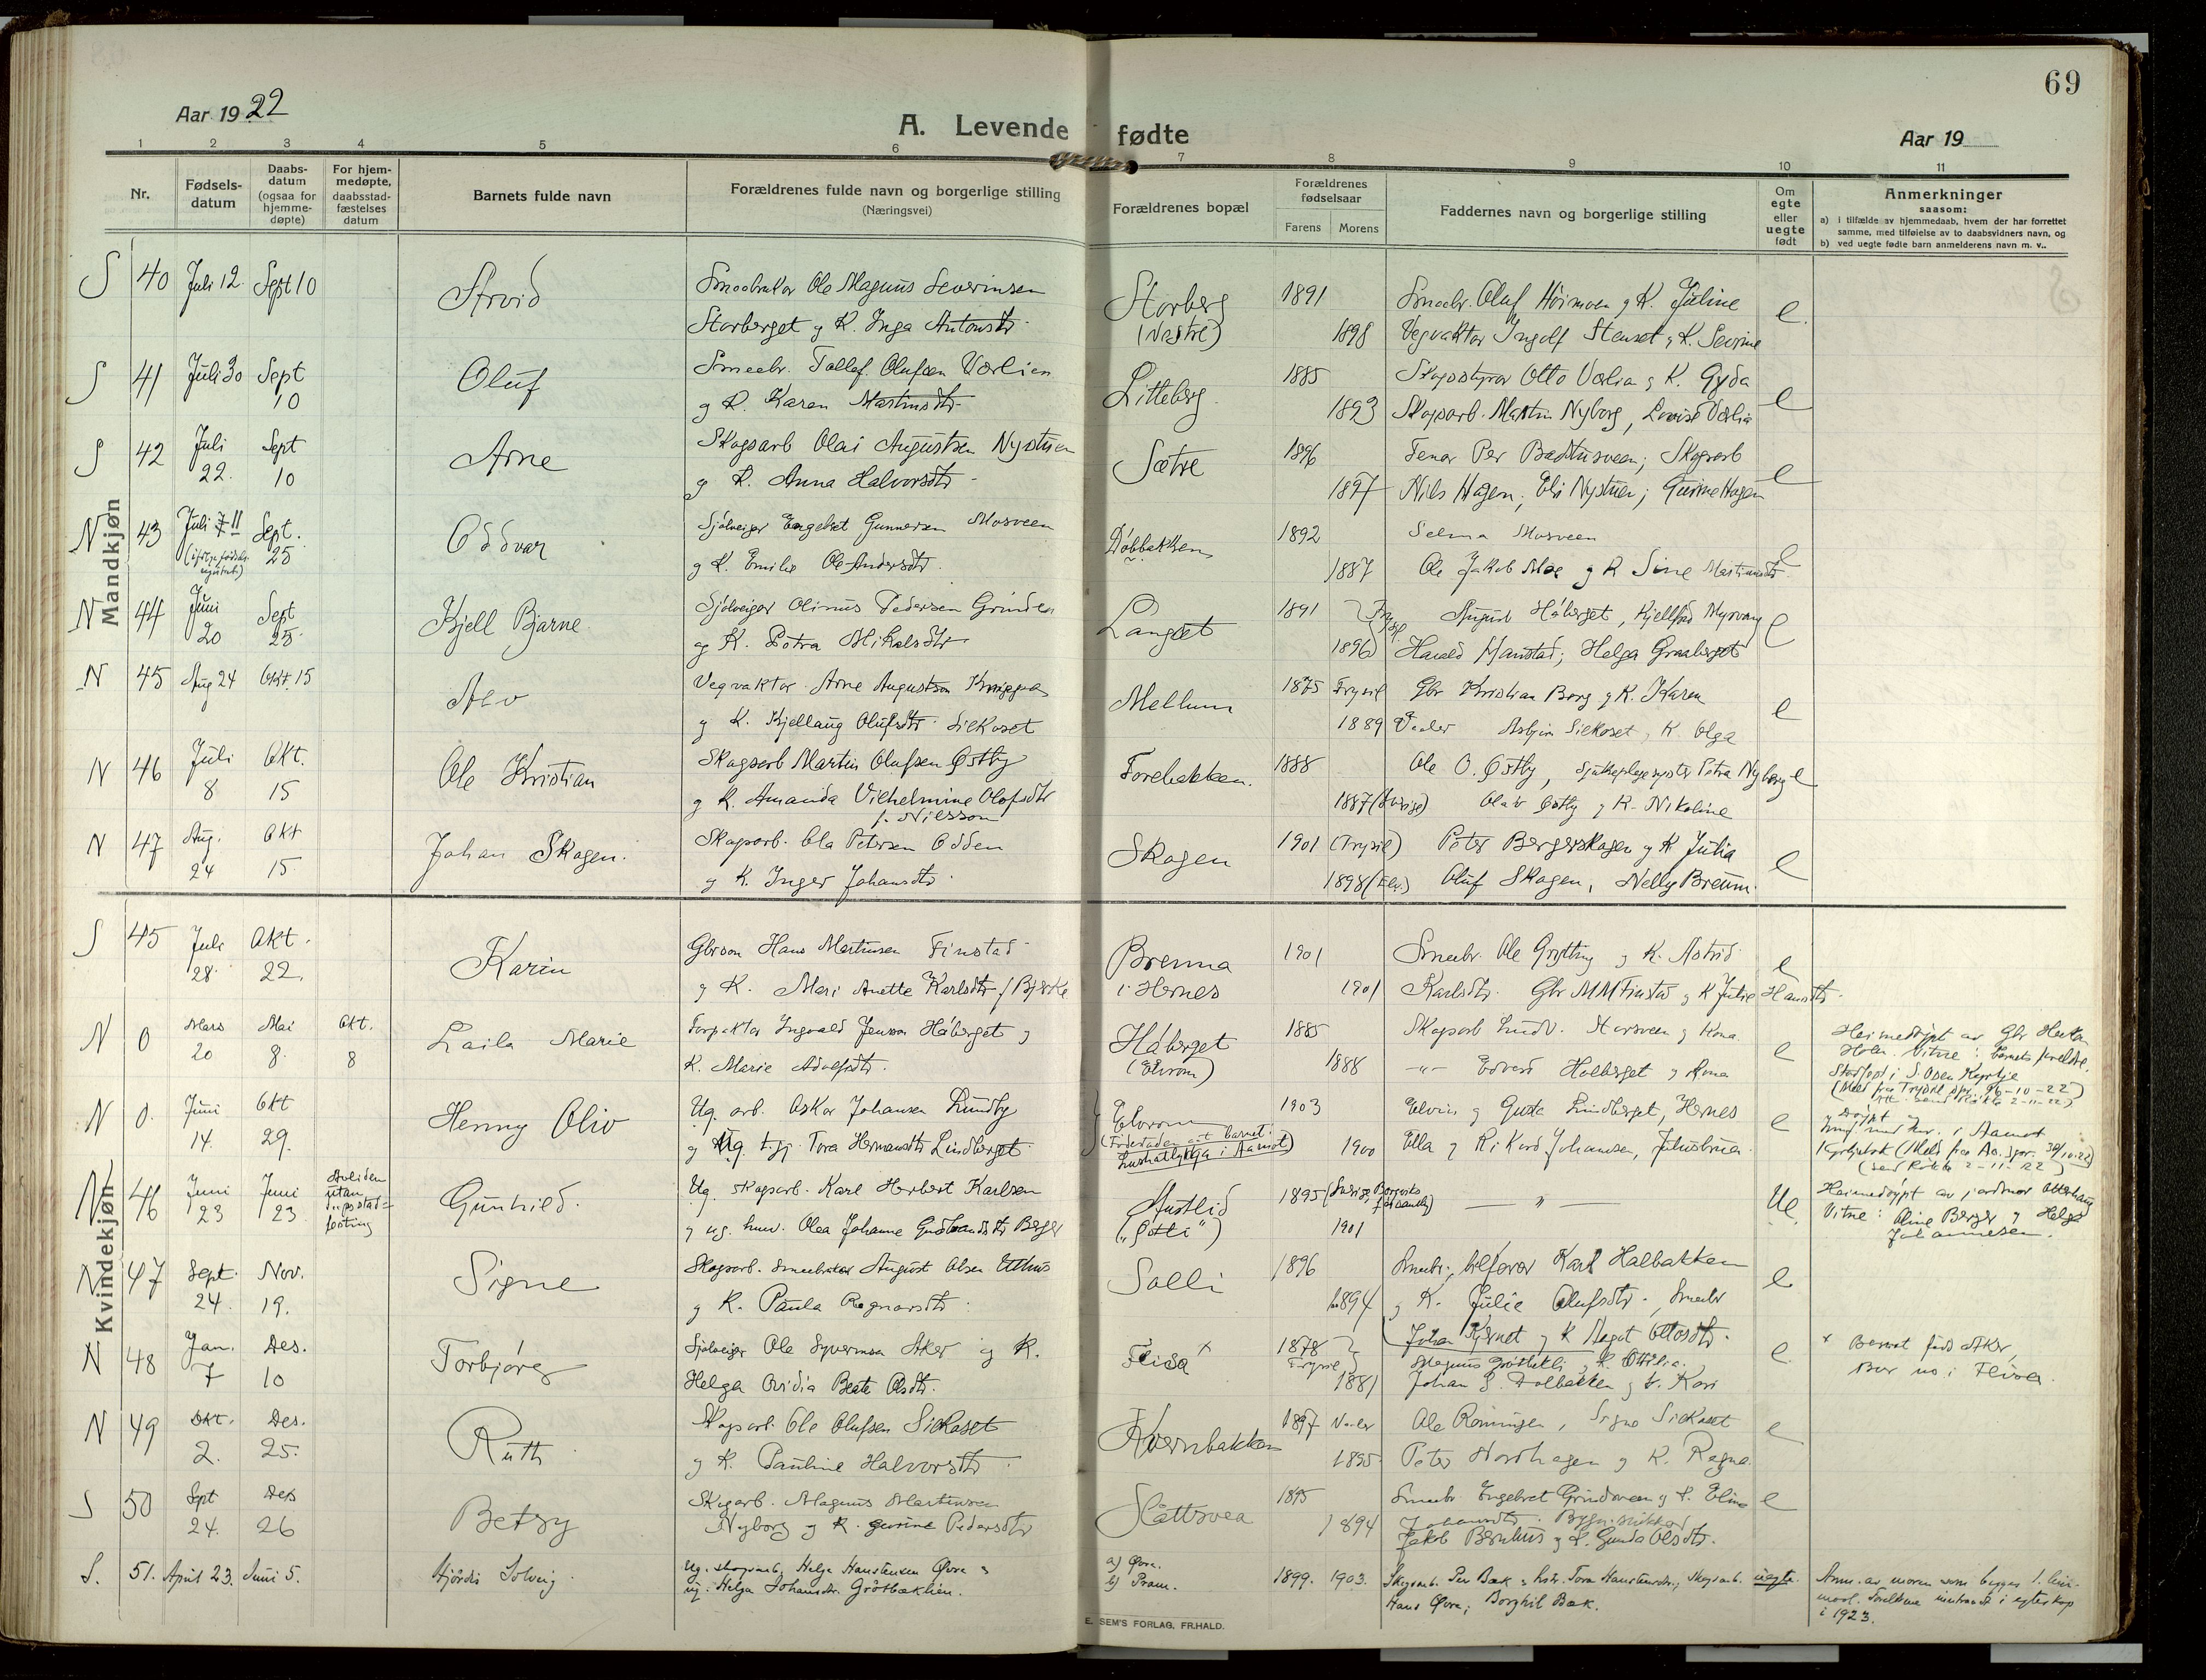 69
Aar 1922
A. Levende fødte
Aar 19
1 2 3 4 5 6 7 8 9 10 11
Nr.
Fødsels-
datum
Daabs-
datum
(ogsaa for
hjemme-
døpte)
For hjem-
medøpte,
daabsstad-
fæstelses
datum
Barnets fulde navn
Forældrenes fulde navn og borgerlige stilling
(Næringsvei)
Forældrenes bopæl
Forældrenes
fødselsaar
Farens Morens
Faddernes navn og borgerlige stilling
Om
egte
eller
uegte
født
Anmerkninger
saasom:
a) i tilfælde av hjemmedaab, hvem der har forrettet
samme, med tilføielse av to daabsvidners navn, og
b) ved uegte fødte barn anmelderens navn m. v..
Mandkjøn
S 40 Juli 12. Sept 10 Arvid
Smaabruker Ole Magnus Severinsen
Storberget g K. Inga Antonsdtr.
Storberg
(Vestre)
1891
1898
Smaabr. Oluf Hörmoen g K. Juline
Vegvaktar Ingolf Stenset, g K. Sevrine
e.
S 41 Juli 30 Sept
10
Oluf
Smaabr. Tollef Olufsen Vœrlien
g K. Karen Martinsdtr.
Litteberg
1885
1893
Otto Vœrlien g K. Gyda
Skogsarb. Martin Nyborg, Lovise Vœrlien
e
S 42 Juli
22.
Sept
10
Arne
Skogsarb Olai Augustsen Nystuen
g K. Anna Halvorsdtr.
Sætre
1896
1897
Per ; Skogsarb
Nils Hagen; Eli Nystuen; Gurine Hagen
e
N 43 Juli 7 11
Sept.
25
Oddvar
Sjölveiger Engebret Gunnersen Mosveen
g K. Emilie Ole Andersdtr.
Döbbakken
1892
1887
Selma Mosveen
Ole Jakob Moe g K Sine Martinusdtr.
e
N 44 Juni
20
Sept
25.
Kjell Bjarne
Sjölveiger Olinus Pedersen Grinder
og K. Petra Mikalsdtr
Langset
1891
1896
Trysil
August Håberget, Kjellfrid Myrvang
Harald Harstad; Helga Graaberget
e
N 45 Aug 24 Okt. 15
Alv
Vegvaktar Arne Augustsen Knappaas
g K. Kjellaug Olufsdtr. Siekoset
Mellum
1875 Trysil
1889 Vaaler
Gbr Kristian Berg g K. Karen
Asbjörn Siekoset, K. Olga
e
N 46 Juli
8
Okt.
15
Ole Kristian
Skogsarb Martin Olufsen Østby
g K. Amanda Vilhelmine Olofsdtr
f. Nilsson
Forebakken.
1888
1887 (Sverige)
Ole O. Østby, Petra Nyberg
Olav Østby g K. Nikoline
e
N 47 Aug.
24
Okt
15
Johan Skogen.
Skogsarb. Ola Petersen Odden
g K. Inger Johansdtr.
Skogen
1901 (Trysil)
1898 (Elv.)
Peter Bergerskogen g K Julia
Oluf Skogen, Nelly Breum.
e
Kvindekjøn
S 45 Juli
28.
Okt.
22.
Karin
Gbrson Hans Martinsen Finstad
g K. Mari Anette Karlsdtr f Bjerke
Brenna
i Hernes
1901
1901
Smaabr. Ole Grytting g K. Astrid
Karlsdtr. Gbr M M Finstad g K Julie Hansdtr.
e
N 0 Mars
20
Mai
8.
Okt.
8
Laila Marie
Forpakter Ingvald Jensson Håberget g
K. Marie Adolfsdtr.
Håberget
(Elverum)
1885
1888
Skogsarb Ludv. g kona.
-"- Edvard Holberget g kona
e
Heimedöypt av Gbr
Holen. Vitne: barnets foreldre.
Stadfest i S. Osen Kyrkje
(Meld fra Trysil spr. 26-10-22)
N 0. Juni
14.
Okt
29.
Henny Oliv
Ug. arb. Oskar Johansen Lundby
g Ug. tj. Tora Hermansdtr Lindberget
Elverum
(Födestaden åt barnet:
i Aamot)
1903
1900
Elvin g Gusta Lindberget, Hernes
Ella g Rikard Johansen, Julusbrua
e
döypt
i Aamot
Kyrkjebok (Meld fra Aa. spr. 30/10-22)
2-11-22)
N 46 Juni
23
Juni
23
Avliden
utan
stad-
festing
Gunhild.
Ug. skogsarb. Karl Herbert Karlsen
g ug. husv. Olea Johanne Gudbrandsdtr Berger
Austlid
1895 (Sverige,
1901
— " —
Ue.
Heimedöypt av jordmor Otterhaug
Vitne: Oline Berger g Helga
Johannesen.
N 47 Sept.
24.
Nov.
19.
Signe
Skogsarb. Smaabruker August Olsen
g K. Paula Ragnarsdtr.
Solli
1896
1894
Smaabr., Karl Halbakken
g K. Julie Olufsdtr., Smaabr
e
N 48 Jan.
7
Des.
10
Torbjörg
Sjölveiger Ole Syversen Aker g K.
Helga Ovidia Beate Olsdtr.
Flisa x
1878
Trysil
1881
Johan g K Aagot Ottosdtr.
Magnus g K. Ottilia.
Johan S. Dalbakken g K. Kari
e
x Barnet födt Aker,
Bur no i Flisa.
N 49 Okt.
2.
Des.
25.
Ruth
Skogsarb. Ole Olufsen Siekoset
g K. Pauline Halvorsdtr.
Kvernbakken
1897 Vaaler
1895
Ole Rönningen, Signe Siekoset
Peter Nordhagen g K. Ragna.
e
S 50 Sept
24.
Des
26
Betsy
Skogarb. Magnus Martinsen
Nyborg g K. Gurine Pedersdtr
Slettsvea
1895
1894
Smaabr. Engebret Grindsveen g K. Eline
Johansdtr. Bygn.snikkar
Jakob g K. Gunda Olsdtr.
e
S. 51. April 23. Juni 5. Hjördis Solveig.
Ug. skogsarb. Helge Haustensen Øvre g
ug. Helga Johansdtr. Grötbækken.
a) Øvre.
b) Pram.
1899. 1903.
Skogsarb. Per Bæk g hstr. Tora ; skogsarb.
Hans Øvre; Borghil Bæk.
uegte.
Anm. av moren som
Foreldrene indtraadt i egteskap
i 1923.
E. SEM'S FORLAG, FR.HALD.